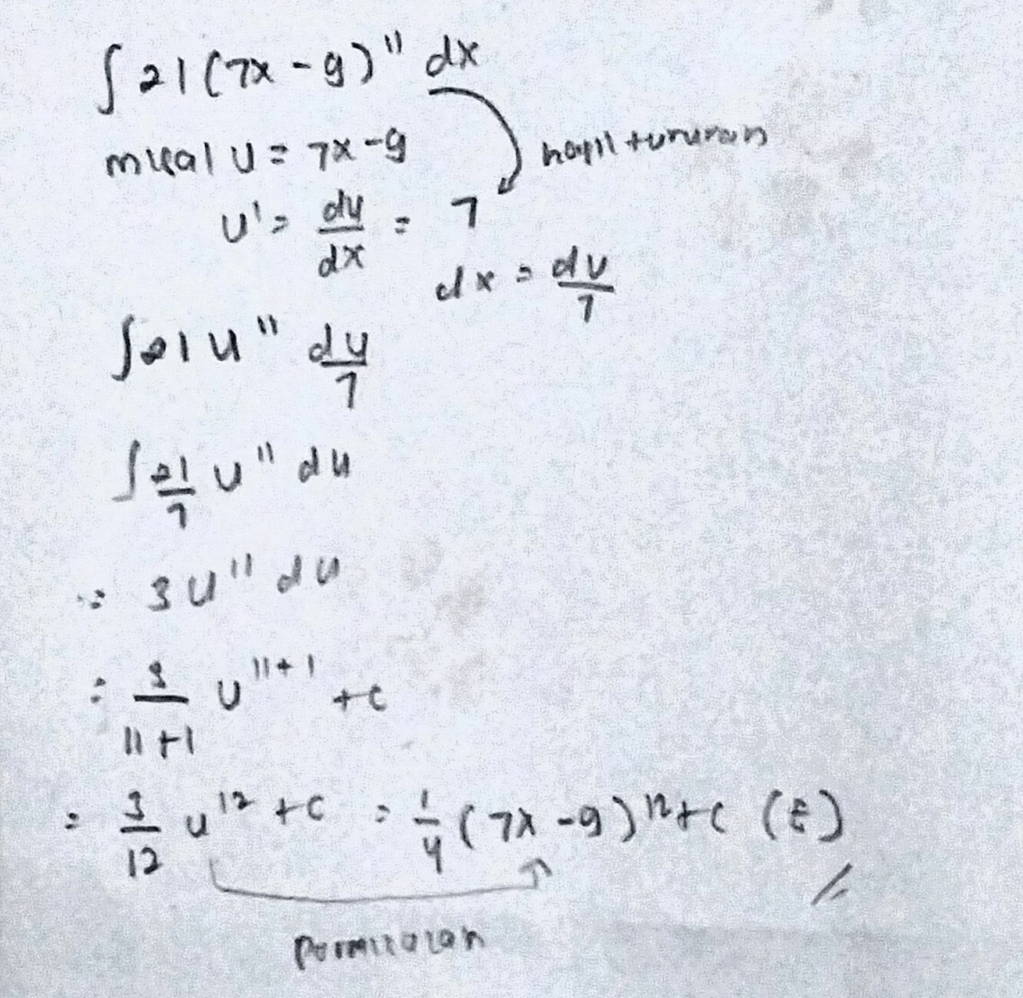 ∫ 21 (7x - 9)¹¹ dx
misal u = 7x - 9
hasil turunan
u' = du/dx = 7
dx = du/7
∫ 21 u¹¹ du/7
∫ 21/7 u¹¹ du
= 3 u¹¹ du
= 3/(11+1) u¹¹⁺¹ + c
= 3/12 u¹² + c = 1/4 (7x - 9)¹² + c (E)
Permisalan